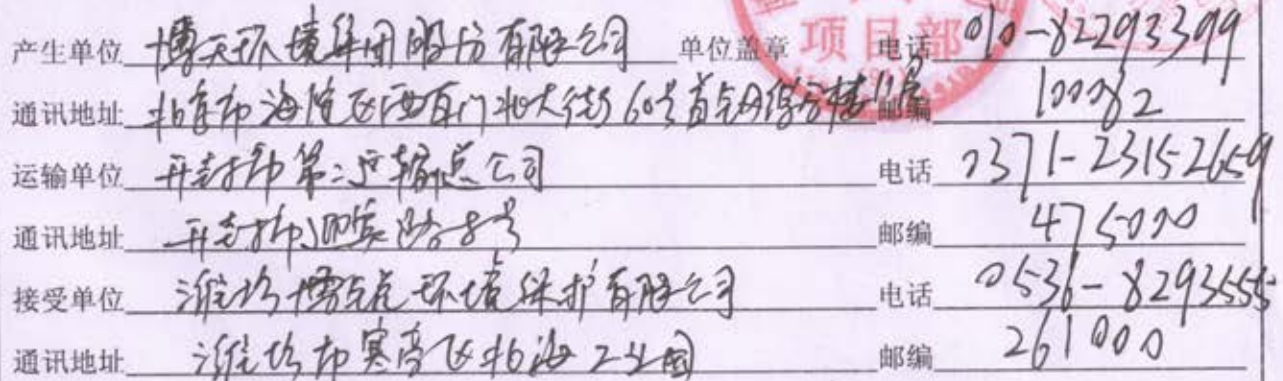 产生单位 博天环境集团股份有限公司 单位盖章 项目部 电话 010-82293399
通讯地址 北京市海淀区西直门北大街60号首钢综合楼11层 邮编 100082
运输单位 开封市第二运输总公司 电话 0371-23152659
通讯地址 开封市迎宾路8号 邮编 475000
接受单位 潍坊博锐环境保护有限公司 电话 0536-8293555
通讯地址 潍坊市寒亭区北海工业园 邮编 261000